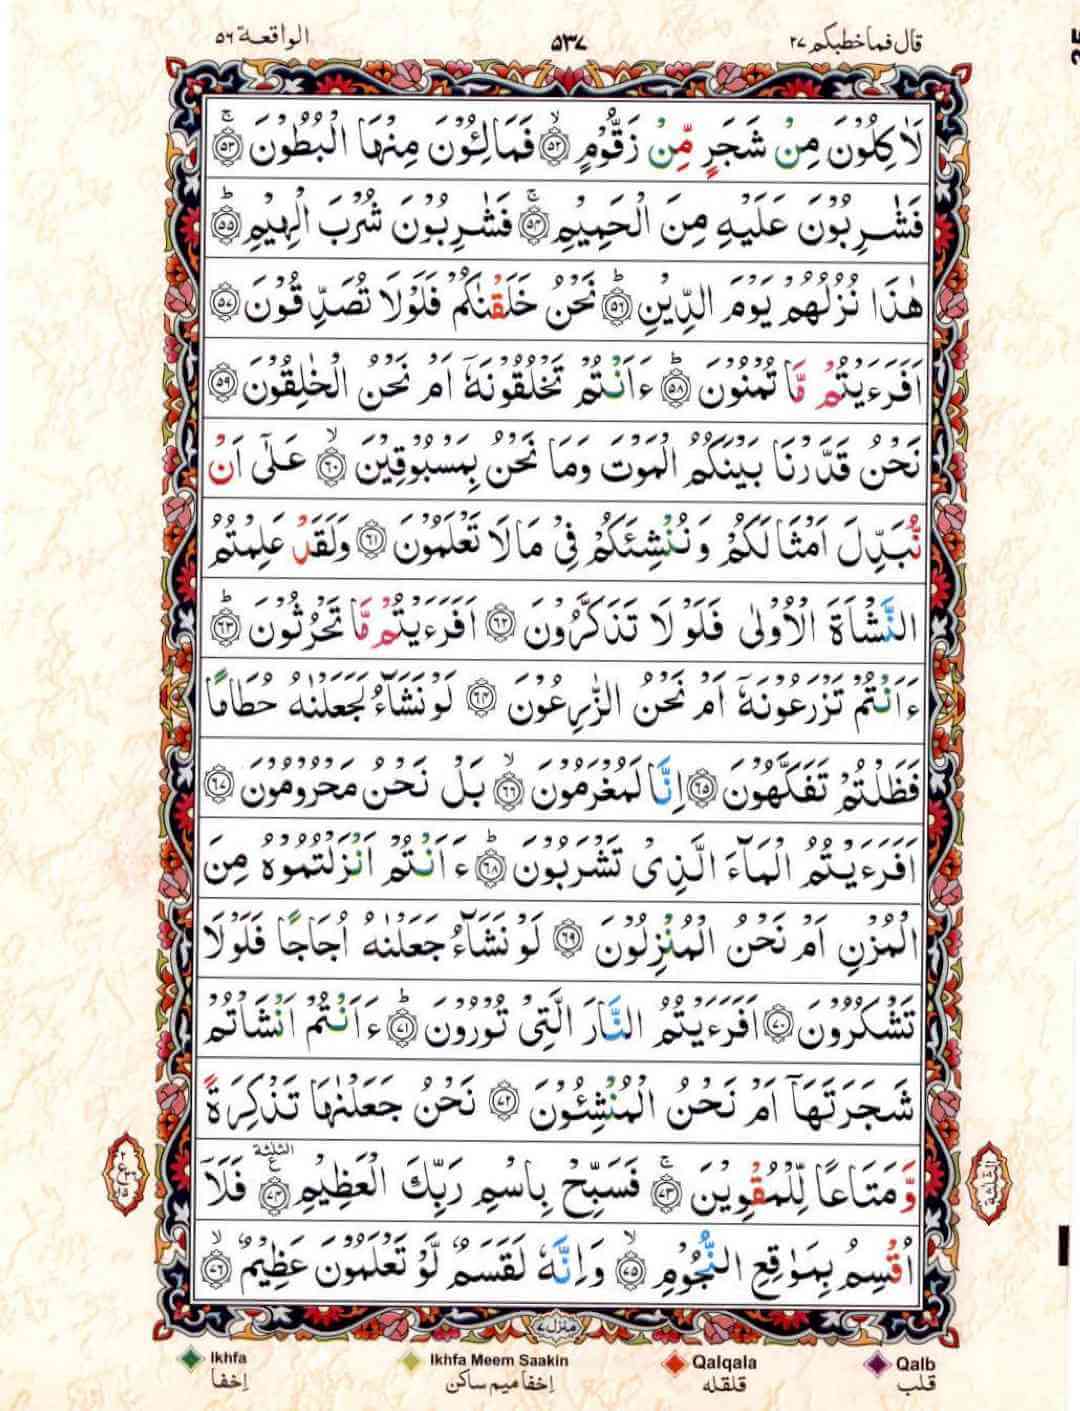 قال فما خطبكم ٢٧ ٥٣٧ الواقعة ٥٦
لَاٰكِلُوْنَ مِنْ شَجَرٍ مِّنْ زَقُّوْمٍ ۙ‏﴿٥٢﴾ فَمَالِـُٔوْنَ مِنْهَا الْبُطُوْنَ ۚ‏﴿٥٣﴾
فَشٰرِبُوْنَ عَلَيْهِ مِنَ الْحَمِيْمِ ۚ‏﴿٥٤﴾ فَشٰرِبُوْنَ شُرْبَ الْهِيْمِ ؕ‏﴿٥٥﴾
هٰذَا نُزُلُهُمْ يَوْمَ الدِّيْنِ ؕ‏﴿٥٦﴾ نَحْنُ خَلَقْنٰكُمْ فَلَوْلَا تُصَدِّقُوْنَ ﴿٥٧﴾
اَفَرَءَيْتُمْ مَّا تُمْنُوْنَ ؕ‏﴿٥٨﴾ ءَاَنْتُمْ تَخْلُقُوْنَهٗۤ اَمْ نَحْنُ الْخٰلِقُوْنَ ﴿٥٩﴾
نَحْنُ قَدَّرْنَا بَيْنَكُمُ الْمَوْتَ وَمَا نَحْنُ بِمَسْبُوْقِيْنَ ۙ‏﴿٦٠﴾ عَلٰٓى اَنْ
نُّبَدِّلَ اَمْثَالَكُمْ وَنُنْشِئَكُمْ فِىْ مَا لَا تَعْلَمُوْنَ ﴿٦١﴾ وَلَقَدْ عَلِمْتُمُ
النَّشْاَةَ الْاُوْلٰى فَلَوْلَا تَذَكَّرُوْنَ ﴿٦٢﴾ اَفَرَءَيْتُمْ مَّا تَحْرُثُوْنَ ؕ‏﴿٦٣﴾
ءَاَنْتُمْ تَزْرَعُوْنَهٗۤ اَمْ نَحْنُ الزّٰرِعُوْنَ ﴿٦٤﴾ لَوْ نَشَآءُ لَجَعَلْنٰهُ حُطَامًا
فَظَلْتُمْ تَفَكَّهُوْنَ ﴿٦٥﴾ اِنَّا لَمُغْرَمُوْنَ ۙ‏﴿٦٦﴾ بَلْ نَحْنُ مَحْرُوْمُوْنَ ﴿٦٧﴾
اَفَرَءَيْتُمُ الْمَآءَ الَّذِىْ تَشْرَبُوْنَ ؕ‏﴿٦٨﴾ ءَاَنْتُمْ اَنْزَلْتُمُوْهُ مِنَ
الْمُزْنِ اَمْ نَحْنُ الْمُنْزِلُوْنَ ﴿٦٩﴾ لَوْ نَشَآءُ جَعَلْنٰهُ اُجَاجًا فَلَوْلَا
تَشْكُرُوْنَ ﴿٧٠﴾ اَفَرَءَيْتُمُ النَّارَ الَّتِىْ تُوْرُوْنَ ؕ‏﴿٧١﴾ ءَاَنْتُمْ اَنْشَاْتُمْ
شَجَرَتَهَاۤ اَمْ نَحْنُ الْمُنْشِـُٔوْنَ ﴿٧٢﴾ نَحْنُ جَعَلْنٰهَا تَذْكِرَةً
وَّمَتَاعًا لِّلْمُقْوِيْنَ ۚ‏﴿٧٣﴾ فَسَبِّحْ بِاسْمِ رَبِّكَ الْعَظِيْمِ ﴿٧٤﴾ الثلثة ع فَلَاۤ
اُقْسِمُ بِمَوٰقِعِ النُّجُوْمِ ۙ‏﴿٧٥﴾ وَاِنَّهٗ لَقَسَمٌ لَّوْ تَعْلَمُوْنَ عَظِيْمٌ ۙ‏﴿٧٦﴾
الثلثة
ع
منزل ٧
Ikhfa Ikhfa Meem Saakin Qalqala Qalb
إخفا إخفا ميم ساكن قلقله قلب